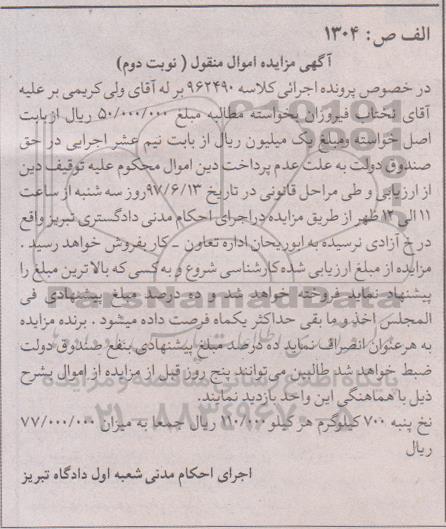 الف ص: ۱۳۰۴
آگهی مزایده اموال منقول ( نوبت دوم)
در خصوص پرونده اجرائی کلاسه ۹۶۲۴۹۰ بر له آقای ولی کریمی بر علیه
آقای تختاب فیروزان بخواسته مطالبه مبلغ ۵۰/۰۰۰/۰۰۰ ریال از بابت
اصل خواسته ومبلغ یک میلیون ریال از بابت نیم عشر اجرایی در حق
صندوق دولت به علت عدم پرداخت دین اموال محکوم علیه توقیف دین
از ارزیابی و طی مراحل قانونی در تاریخ ۹۷/۶/۱۳روز سه شنبه از ساعت
۱۱ الی ۱۲ ظهر از طریق مزایده دراجرای احکام مدنی دادگستری تبریز واقع
در خ آزادی نرسیده به ابوریحان اداره تعاون - کار بفروش خواهد رسید .
مزایده از مبلغ ارزیابی شده کارشناسی شروع و به کسی که بالاترین مبلغ را
پیشنهاد نماید فروخته خواهد شد و ده درصد مبلغ پیشنهادی فی
المجلس اخذ و ما بقی حداکثر یکماه فرصت داده میشود . برنده مزایده
به هر عنوان انصراف نماید ده درصد مبلغ پیشنهادی بنفع صندوق دولت
ضبط خواهد شد طالبین می توانند پنج روز قبل از مزایده از اموال بشرح
ذیل با هماهنگی این واحد بازدید نمایند.
نخ پنبه ۷۰۰ کیلوگرم هر کیلو ۱۱۰/۰۰۰ ریال جمعا به میزان ۷۷/۰۰۰/۰۰۰
ریال
اجرای احکام مدنی شعبه اول دادگاه تبریز
ParsNamadData
پایگاه اطلاع رسانی مناقصه و مزایده
۰۲۱-۸۸۳۴۹۶۷۰-۵